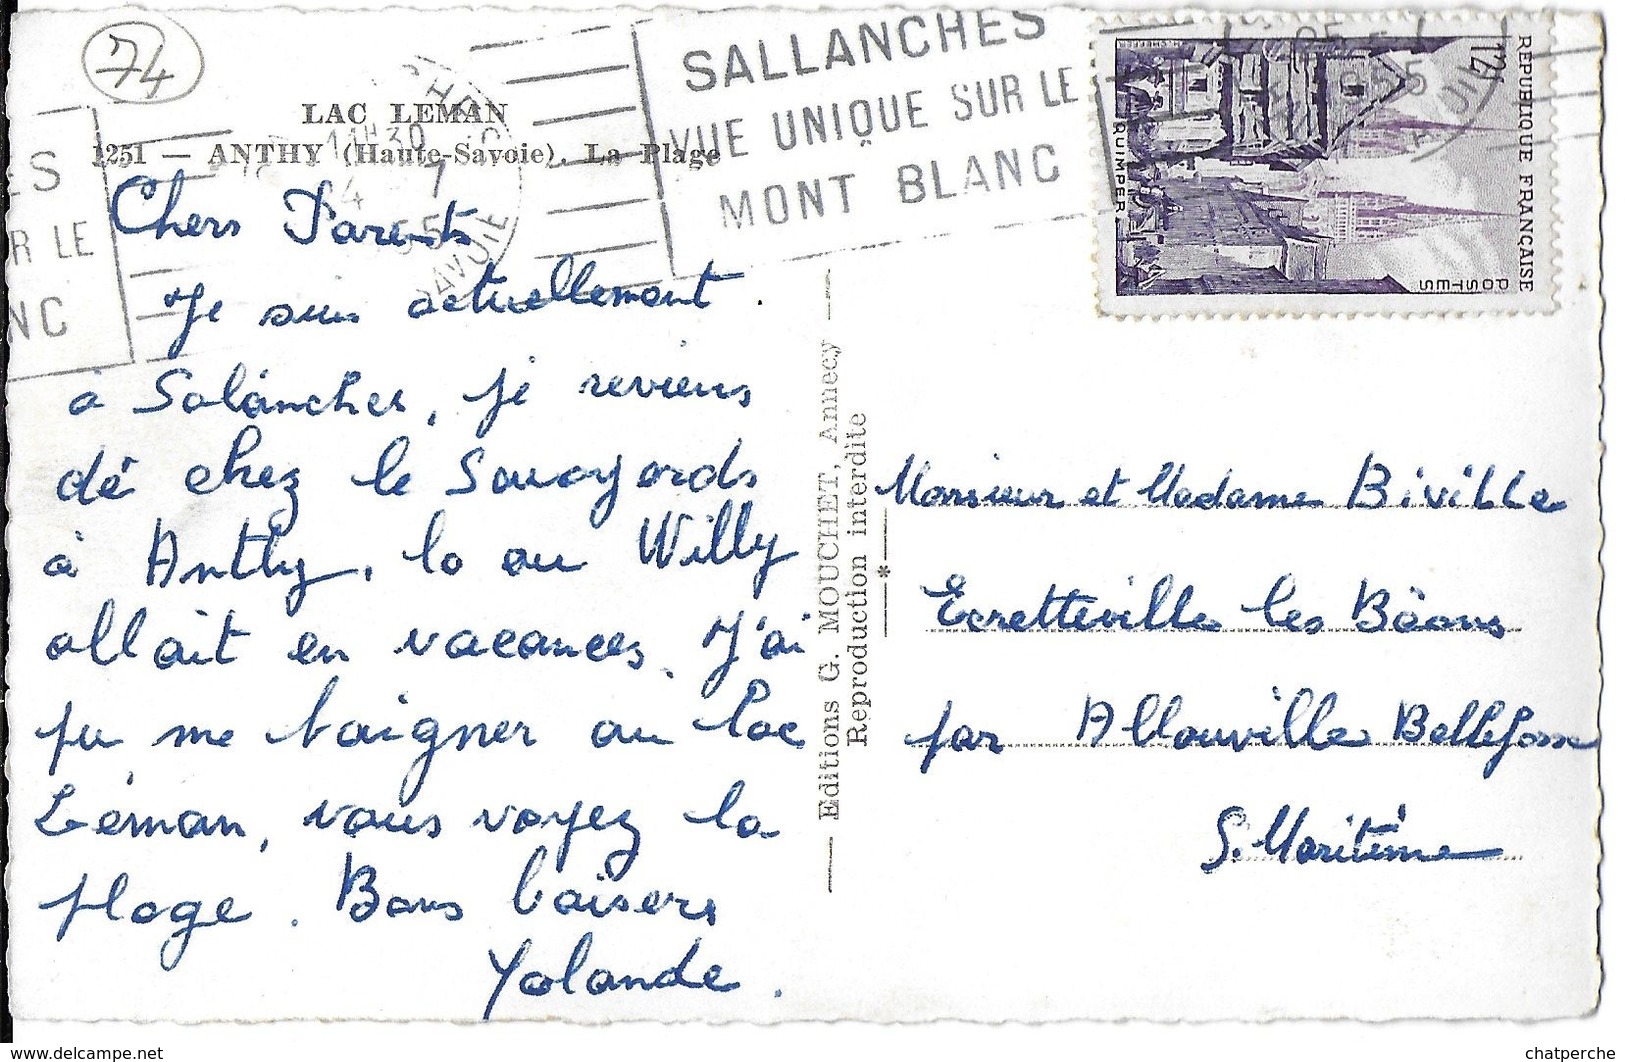 74
LAC LEMAN
1251 — ANTHY (Haute-Savoie). La Plage
11H30
4 - 7
55
SAVOIE
ES
R LE
NC
SALLANCHES
VUE UNIQUE SUR LE
MONT BLANC
RÉPUBLIQUE FRANÇAISE
12F
POSTES
QUIMPER
Chers Parents
Je suis actuellement
à Salánches, je reviens
dé chez le Savoyards
à Anthy, la ou Willy
allait en vacances. J'ai
pu me baigner au lac
Léman, vous voyez la
plage. Bons baisers
Yolande.
Editions G. MOUCHET, Annecy
Reproduction interdite
*
Monsieur et Madame Biville
Ecretteville les Bâons
par Allouville Bellefosse
S. Maritime
chatperche